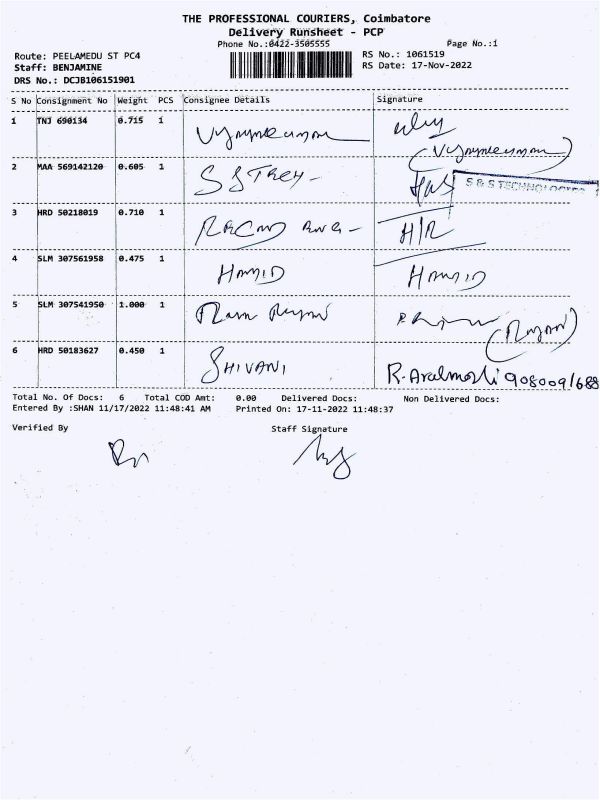 THE PROFESSIONAL COURIERS, Coimbatore
Delivery Runsheet - PCP
Phone No.:0422-3505555 Page No.:1
Route: PEELAMEDU ST PC4 RS No.: 1061519
Staff: BENJAMINE RS Date: 17-Nov-2022
DRS No.: DCJB106151901
S No Consignment No Weight PCS Consignee Details Signature
1 TNJ 690134 0.715 1
2 MAA 569142120 0.605 1
S & S TECHNOLOGIES
3 HRD 50218019 0.710 1 H/R
4 SLM 307561958 0.475 1 HAMID HAMID
5 SLM 307541950 1.000 1
6 HRD 50183627 0.450 1 SHIVANI R.
Total No. Of Docs: 6 Total COD Amt: 0.00 Delivered Docs: Non Delivered Docs:
Entered By :SHAN 11/17/2022 11:48:41 AM Printed On: 17-11-2022 11:48:37
Verified By Staff Signature